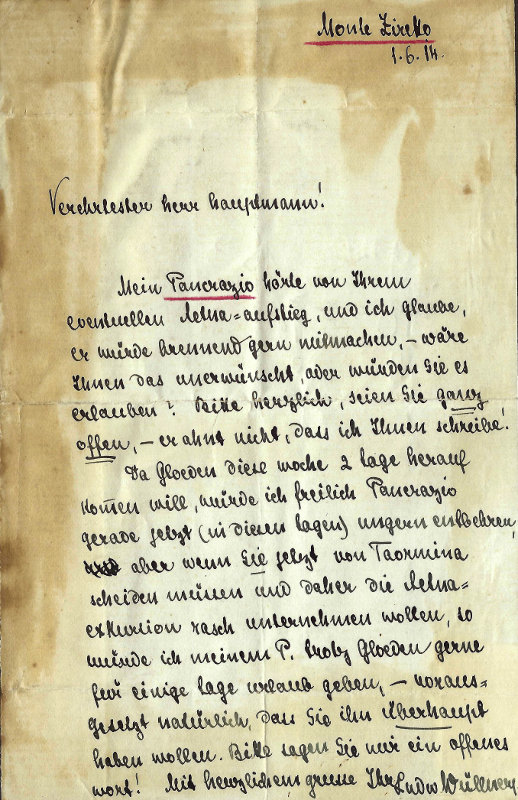 Monte Zireto
1.6.14.
Verehrtester Herr Hauptmann!
Mein Pancrazio hörte von Ihrem
eventuellen Aetna=aufstieg, und ich glaube,
er würde brennend gern mitmachen, – wäre
Ihnen das unerwünscht, oder würden Sie es
erlauben? Bitte herzlich, seien Sie ganz
offen, – er ahnt nicht, dass ich Ihnen schreibe!
Da Gloeden diese woche 2 tage herauf
kom̄en will, würde ich freilich Pancrazio
gerade jetzt (in diesen tagen) ungern entbehren,
aber wenn Sie jetzt von Taormina
scheiden müssen und daher die Aetna=
exkursion rasch unternehmen wollen, so
würde ich meinem P. trotz Gloeden gerne
für einige tage urlaub geben, – voraus=
gesetzt natürlich, dass Sie ihn überhaupt
haben wollen. Bitte sagen Sie mir ein offenes
wort! Mit herzlichem grusse Ihr Ludw Wüllner